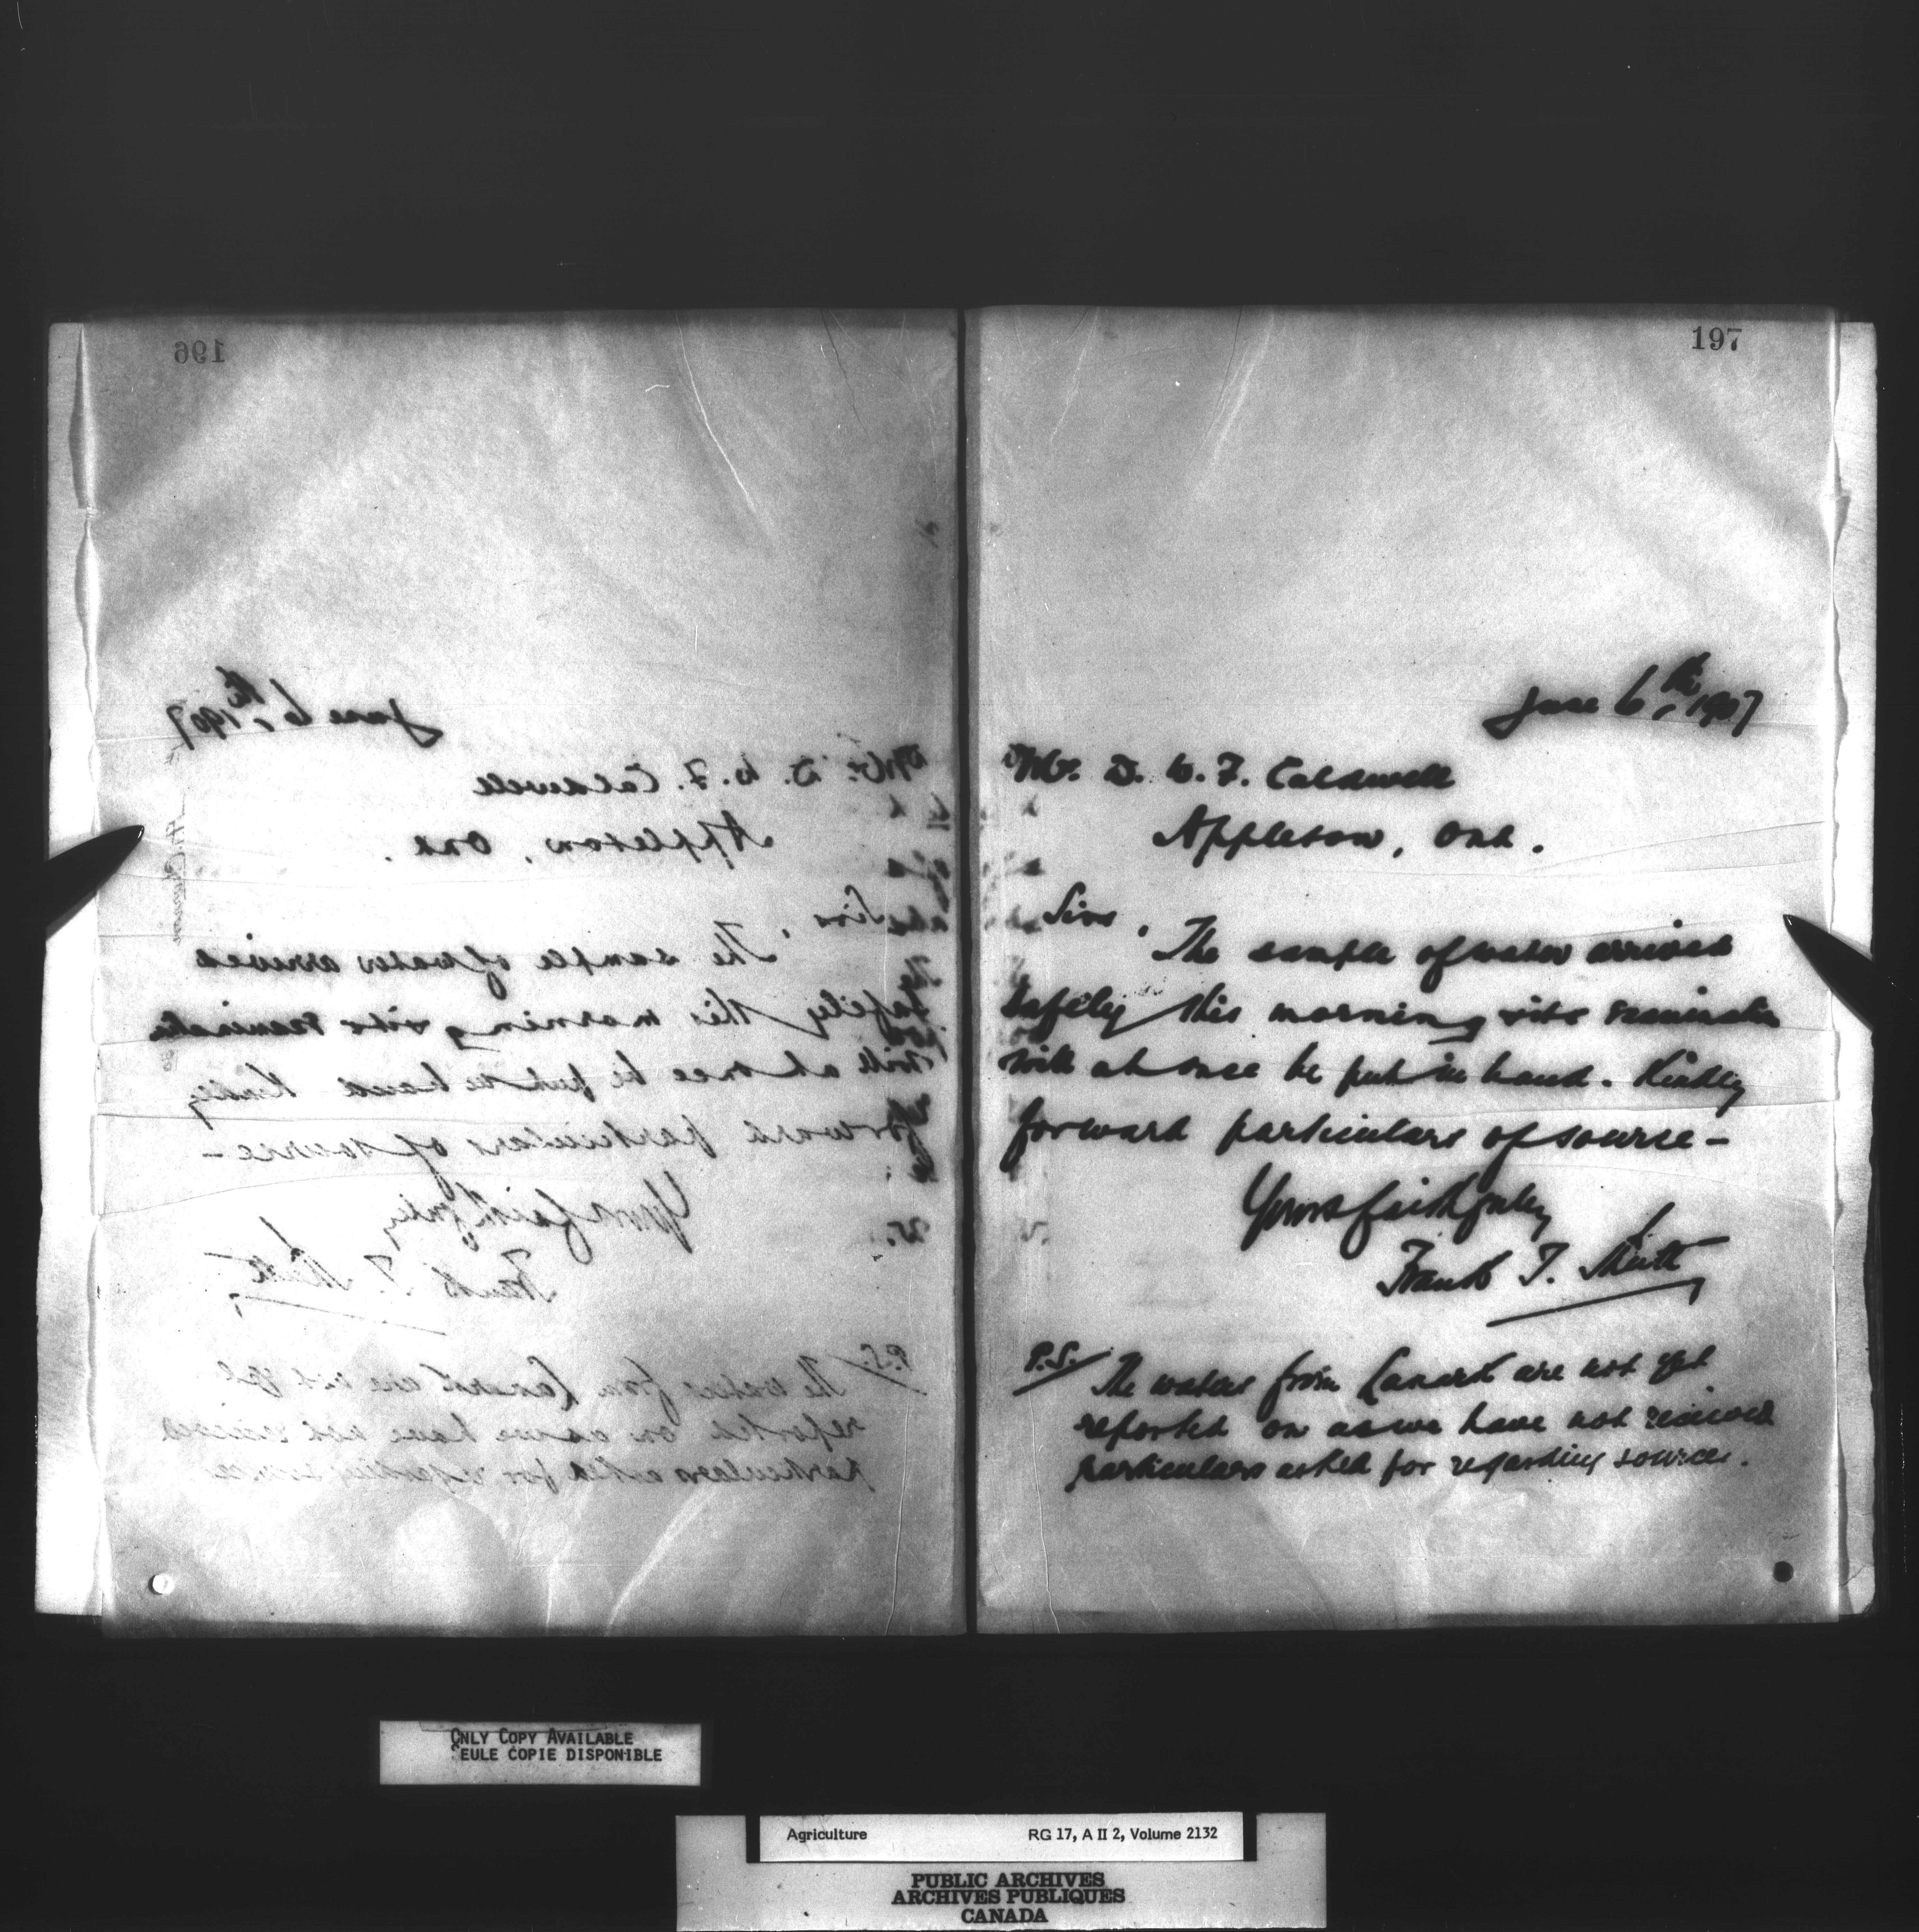 196
197
June 6th, 1907
Mr. D. W. F. Caldwell
Appleton, Ont.
Sir,
The sample of water arrived
safely this morning & its examination
will at once be put in hand. Kindly
forward particulars of source –
Yours faithfully
Frank T. Shutt
P.S. The waters from Lanark are not yet
reported on as we have not received
particulars asked for regarding source.
ONLY COPY AVAILABLE
SEULE COPIE DISPONIBLE
Agriculture RG 17, A II 2, Volume 2132
PUBLIC ARCHIVES
ARCHIVES PUBLIQUES
CANADA